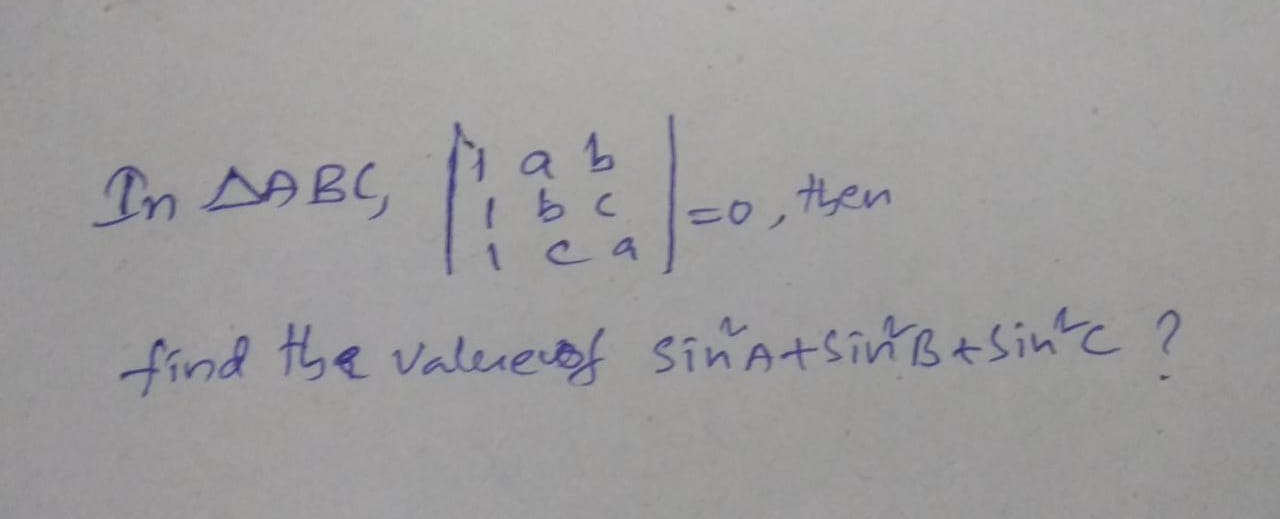 In ΔABC, | 1 a b |
| 1 b c | =0, then
| 1 c a |
find the value of Sin²A+Sin²B+Sin²C ?